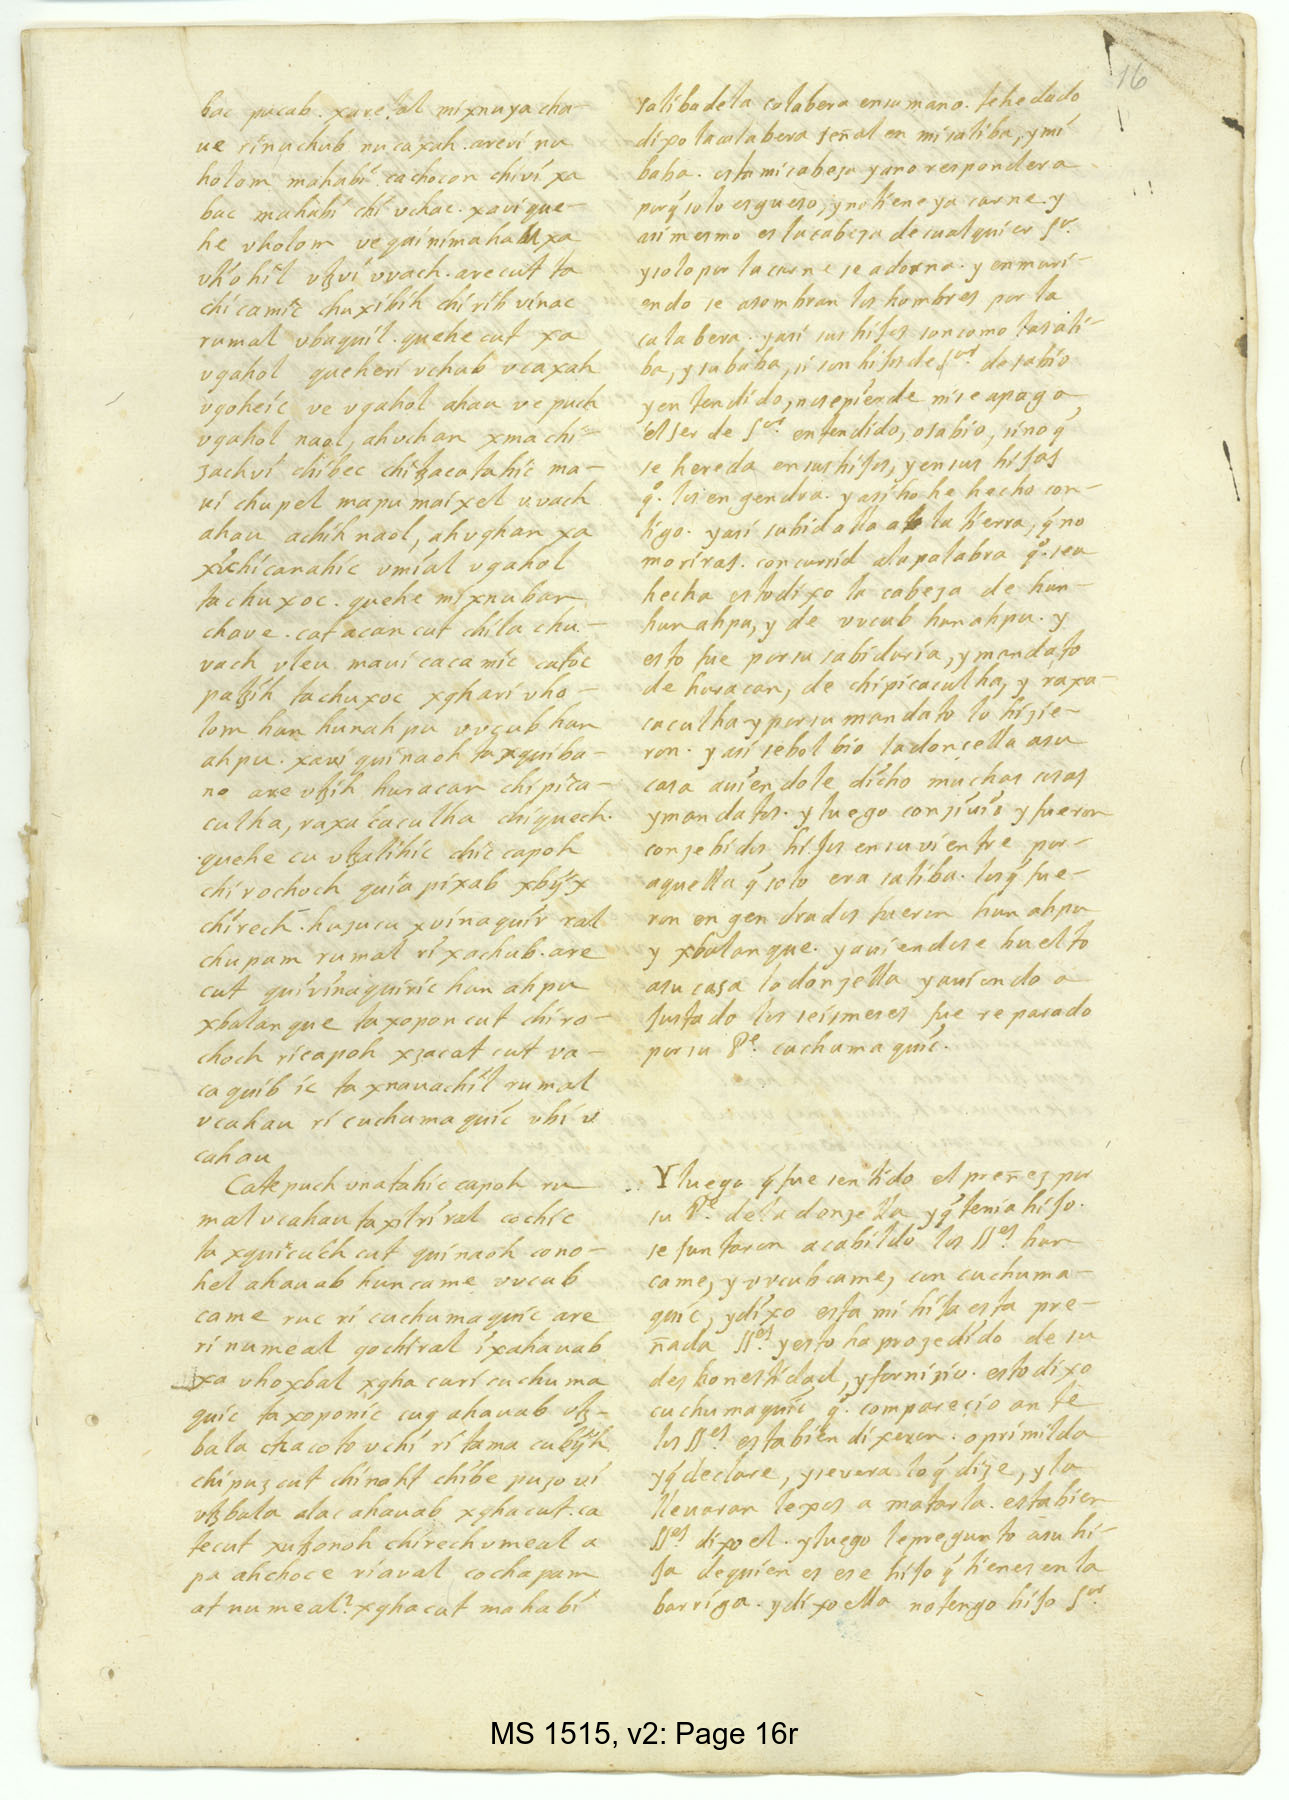 16
bac pucab. xare etal mixnuya cha-
ue ri nuchub nucaxah. areui nu
holom mahabi cachocon chiui xa
bac mahabi chi vchac. xaui que-
he vholom ve qainimaha xa
vtiohil vtzui vvach. arecut ta
chicamic chuxibih chirih vinac
rumal vbaquil. quehe cut xa
vqahol queheri vchub vcaxah
vqoheic ve vqahol ahau ve puch
vqahol naol, ahuchan xma chi-
zachui chibec chitzacatahic ma-
ui chupel mapu maixel vvach
ahau achih naol, ahvqhan xa
xchicanahic vmial vqahol
tachuxoc. quehe mixnuban
chave. catacan cut chila chu-
vach vleu maui cacamic catoc
patzih tachuxoc xqhari vho-
lom hun hunah pu vvcub hun
ahpu. xaui quinaoh ta xquiba-
no are vtzih huracan chipica-
culha, raxa caculha chiquech.
quehe cu vtzalihic chic capoh
chirochoch quia pixab xbijx
chirech. huzucu xuinaquir ral
chupam rumal ri xachub. are
cut quiuinaquiric hun ahpu
xbalanque taxopon cut chiro-
choch ricapoh xzacat cut va-
caquib ic ta xnauachil rumal
vcahau ri cuchumaquic vbi v
cahau
Catepuch vnatahic capoh ru
mal vcahau ta xil ri ral cochic
ta xquicuch cut quinaoh cono-
hel ahauab huncame vvcub
came ruc ri cuchumaquic are
ri numeal qochiral ixahauab
xa vhoxbal xqha curi cuchuma
quic ta xoponic cuq ahauab vtz-
bala chacoto vchi ri tama cubijh
chipuz cut chinoht chibe puzo ui
vtzbala alac ahauab xqhacut. ca
tecut xutzonoh chirech vmeal a
pa ahchoce riaual cochapam
at numeal? xqhacut mahabi
saliba de la calabera en su mano. te he dado
dixo la calabera señal en mi saliba, y mi
baba. esta mi cabeza ya no respondera
porq̃ solo es gueso, y no tiene ya carne. y
asi mesmo es la cabeza de cualquier Sr.
y solo por la carne se adorna. y en muri-
endo se asombran los hombres por la
calabera. y asi sus hijos son como la sali-
ba, y su baba, si son hijos de Sor. de sabio
y entendido, no se pierde ni se apaga
el ser de Sor. entendido, o sabio, sino q̃
se hereda en sus hijos, y en sus hijas
qe. los engendra. y asi ho he hecho con-
tigo. y asi subid alla a la tierra, q̃ no
moriras. concurrid a la palabra qe. sea
hecha esto dixo la cabeza de hun-
hun ahpu, y de vvcub hun ahpu. y
esto fue por su sabiduria, y mandato
de huracan, de chipicaculha, y raxa-
caculha y por su mandato lo hizie-
ron. y asi se bolbio la doncella a su
casa auiendole dicho muchas cosas
y mandatos. y luego conziuio y fueron
conzebidos hijos en su vientre por-
aquella q̃ solo era saliba. los q̃ fue-
ron engendrados fueron hun ahpu
y xbalanque. y auiendose buelto
a su casa la donzella y auiendo a
justado los seis meses fue reparado
por su Pe. cuchumaquic.
Y luego q̃ fue sentido el preñez por
su Pe. de la donzella y q̃ tenia hijo.
se juntaron a cabildo los SSes. hun
came, y vvcub came, con cuchuma-
quic, y dixo esta mi hija esta pre-
ñada SSes. y esto ha prozedido de su
deshonestidad, y fornizio. esto dixo
cuchumaquic qe. comparecio ante
los SSes. esta bien dixeron. oprimilda
y q̃ declare, y severa lo q̃ dize, y la
lleuaran lexos a matarla. esta bien
SSes. dixo el. y luego le pregunto a su hi-
ja de quien es ese hijo q̃ tienes en la
barriga. y dixo ella no tengo hijo Sor.
MS 1515, v2: Page 16r